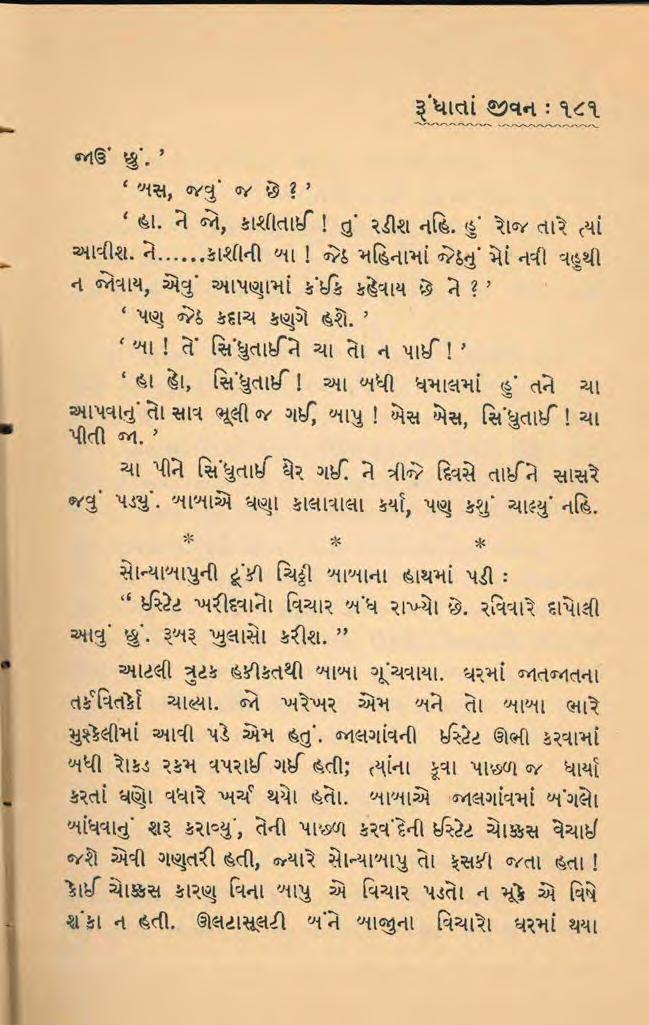 રૂંધાતાં જીવન : ૧૮૧
જાઉં છું.’
‘ બસ, જવું જ છે ? ’
‘ હા. ને જો, કાશીતાઈ ! તું રડીશ નહિ. હું રોજ તારે ત્યાં
આવીશ. ને......કાશીની બા ! જેઠ મહિનામાં જેઠનું મોં નવી વહુથી
ન જોવાય, એવું આપણામાં કંઈક કહેવાય છે ને ? ’
‘ પણ જેઠ કદાચ કણગે હશે. ’
‘ બા ! તેં સિંધુતાઈને ચા તો ન પાઈ ! ’
‘ હા હો, સિંધુતાઈ ! આ બધી ધમાલમાં હું તને ચા
આપવાનું તો સાવ ભૂલી જ ગઈ, બાપુ ! બેસ બેસ, સિંધુતાઈ ! ચા
પીતી જા. ’
ચા પીને સિંધુતાઈ ઘેર ગઈ. ને ત્રીજે દિવસે તાઈને સાસરે
જવું પડ્યું. બાબાએ ઘણા કાલાવાલા કર્યા, પણ કશું ચાલ્યું નહિ.
* * *
સોન્યાબાપુની ટૂંકી ચિઠ્ઠી બાબાના હાથમાં પડી :
“ ઇસ્ટેટ ખરીદવાનો વિચાર બંધ રાખ્યો છે. રવિવારે દાપોલી
આવું છું. રૂબરૂ ખુલાસો કરીશ. ”
આટલી ત્રુટક હકીકતથી બાબા ગૂંચવાયા. ઘરમાં જાતજાતના
તર્કવિતર્કો ચાલ્યા. જો ખરેખર એમ બને તો બાબા ભારે
મુશ્કેલીમાં આવી પડે એમ હતું. જાલગાંવની ઇસ્ટેટ ઊભી કરવામાં
બધી રોકડ રકમ વપરાઈ ગઈ હતી; ત્યાંના કૂવા પાછળ જ ધાર્યા
કરતાં ઘણો વધારે ખર્ચ થયો હતો. બાબાએ જાલગાંવમાં બંગલો
બાંધવાનું શરૂ કરાવ્યું, તેની પાછળ કરવંદેની ઇસ્ટેટ ચોક્કસ વેચાઈ
જશે એવી ગણતરી હતી, જ્યારે સોન્યાબાપુ તો ફસકી જતા હતા !
કોઈ ચોક્કસ કારણ વિના બાપુ એ વિચાર પડતો ન મૂકે એ વિષે
શંકા ન હતી. ઊલટાસૂલટી બંને બાજુના વિચારો ઘરમાં થયા